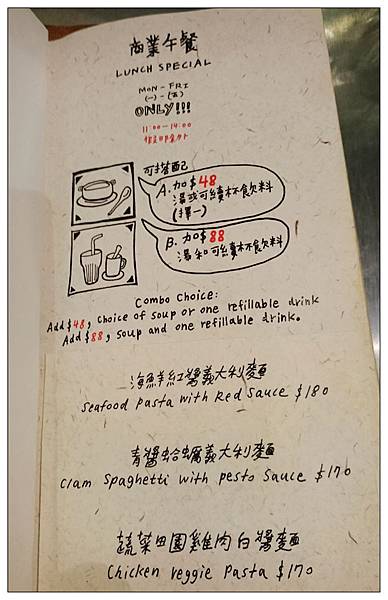 商業午餐
LUNCH SPECIAL
MON - FRI
(一) - (五)
ONLY!!!
11:00-14:00
假日除外
可搭配
A. 加$48
湯或可續杯飲料
(擇一)
B. 加$88
湯和可續杯飲料
Combo Choice:
Add $48, choice of soup or one refillable drink
Add $88, soup and one refillable drink.
海鮮紅醬義大利麵
Seafood Pasta with Red Sauce $180
青醬蛤蠣義大利麵
Clam Spaghetti with pesto Sauce $170
蔬菜田園雞肉白醬麵
Chicken Veggie Pasta $170